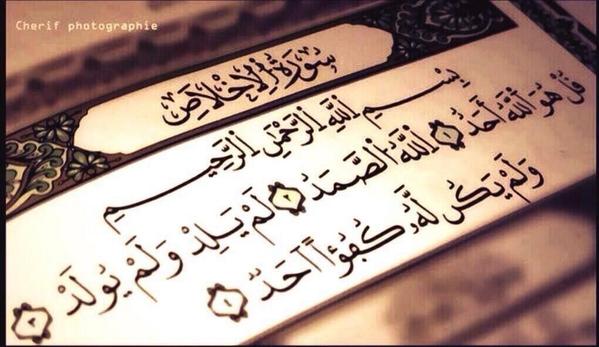 Cherif photographie
سُورَةُ الْإِخْلَاصِ
بِسْمِ اِللَّهِ اِلرَّحْمَٰنِ اِلرَّحِيمِ
قُلْ هُوَ اَللَّهُ أَحَدٌ ١ اِللَّهُ اُلصَّمَدُ ٢ لَمْ يَلِدْ وَلَمْ يُولَدْ ٣
وَلَمْ يَكُن لَّهُۥ كُفُؤاً اَحَدٌ